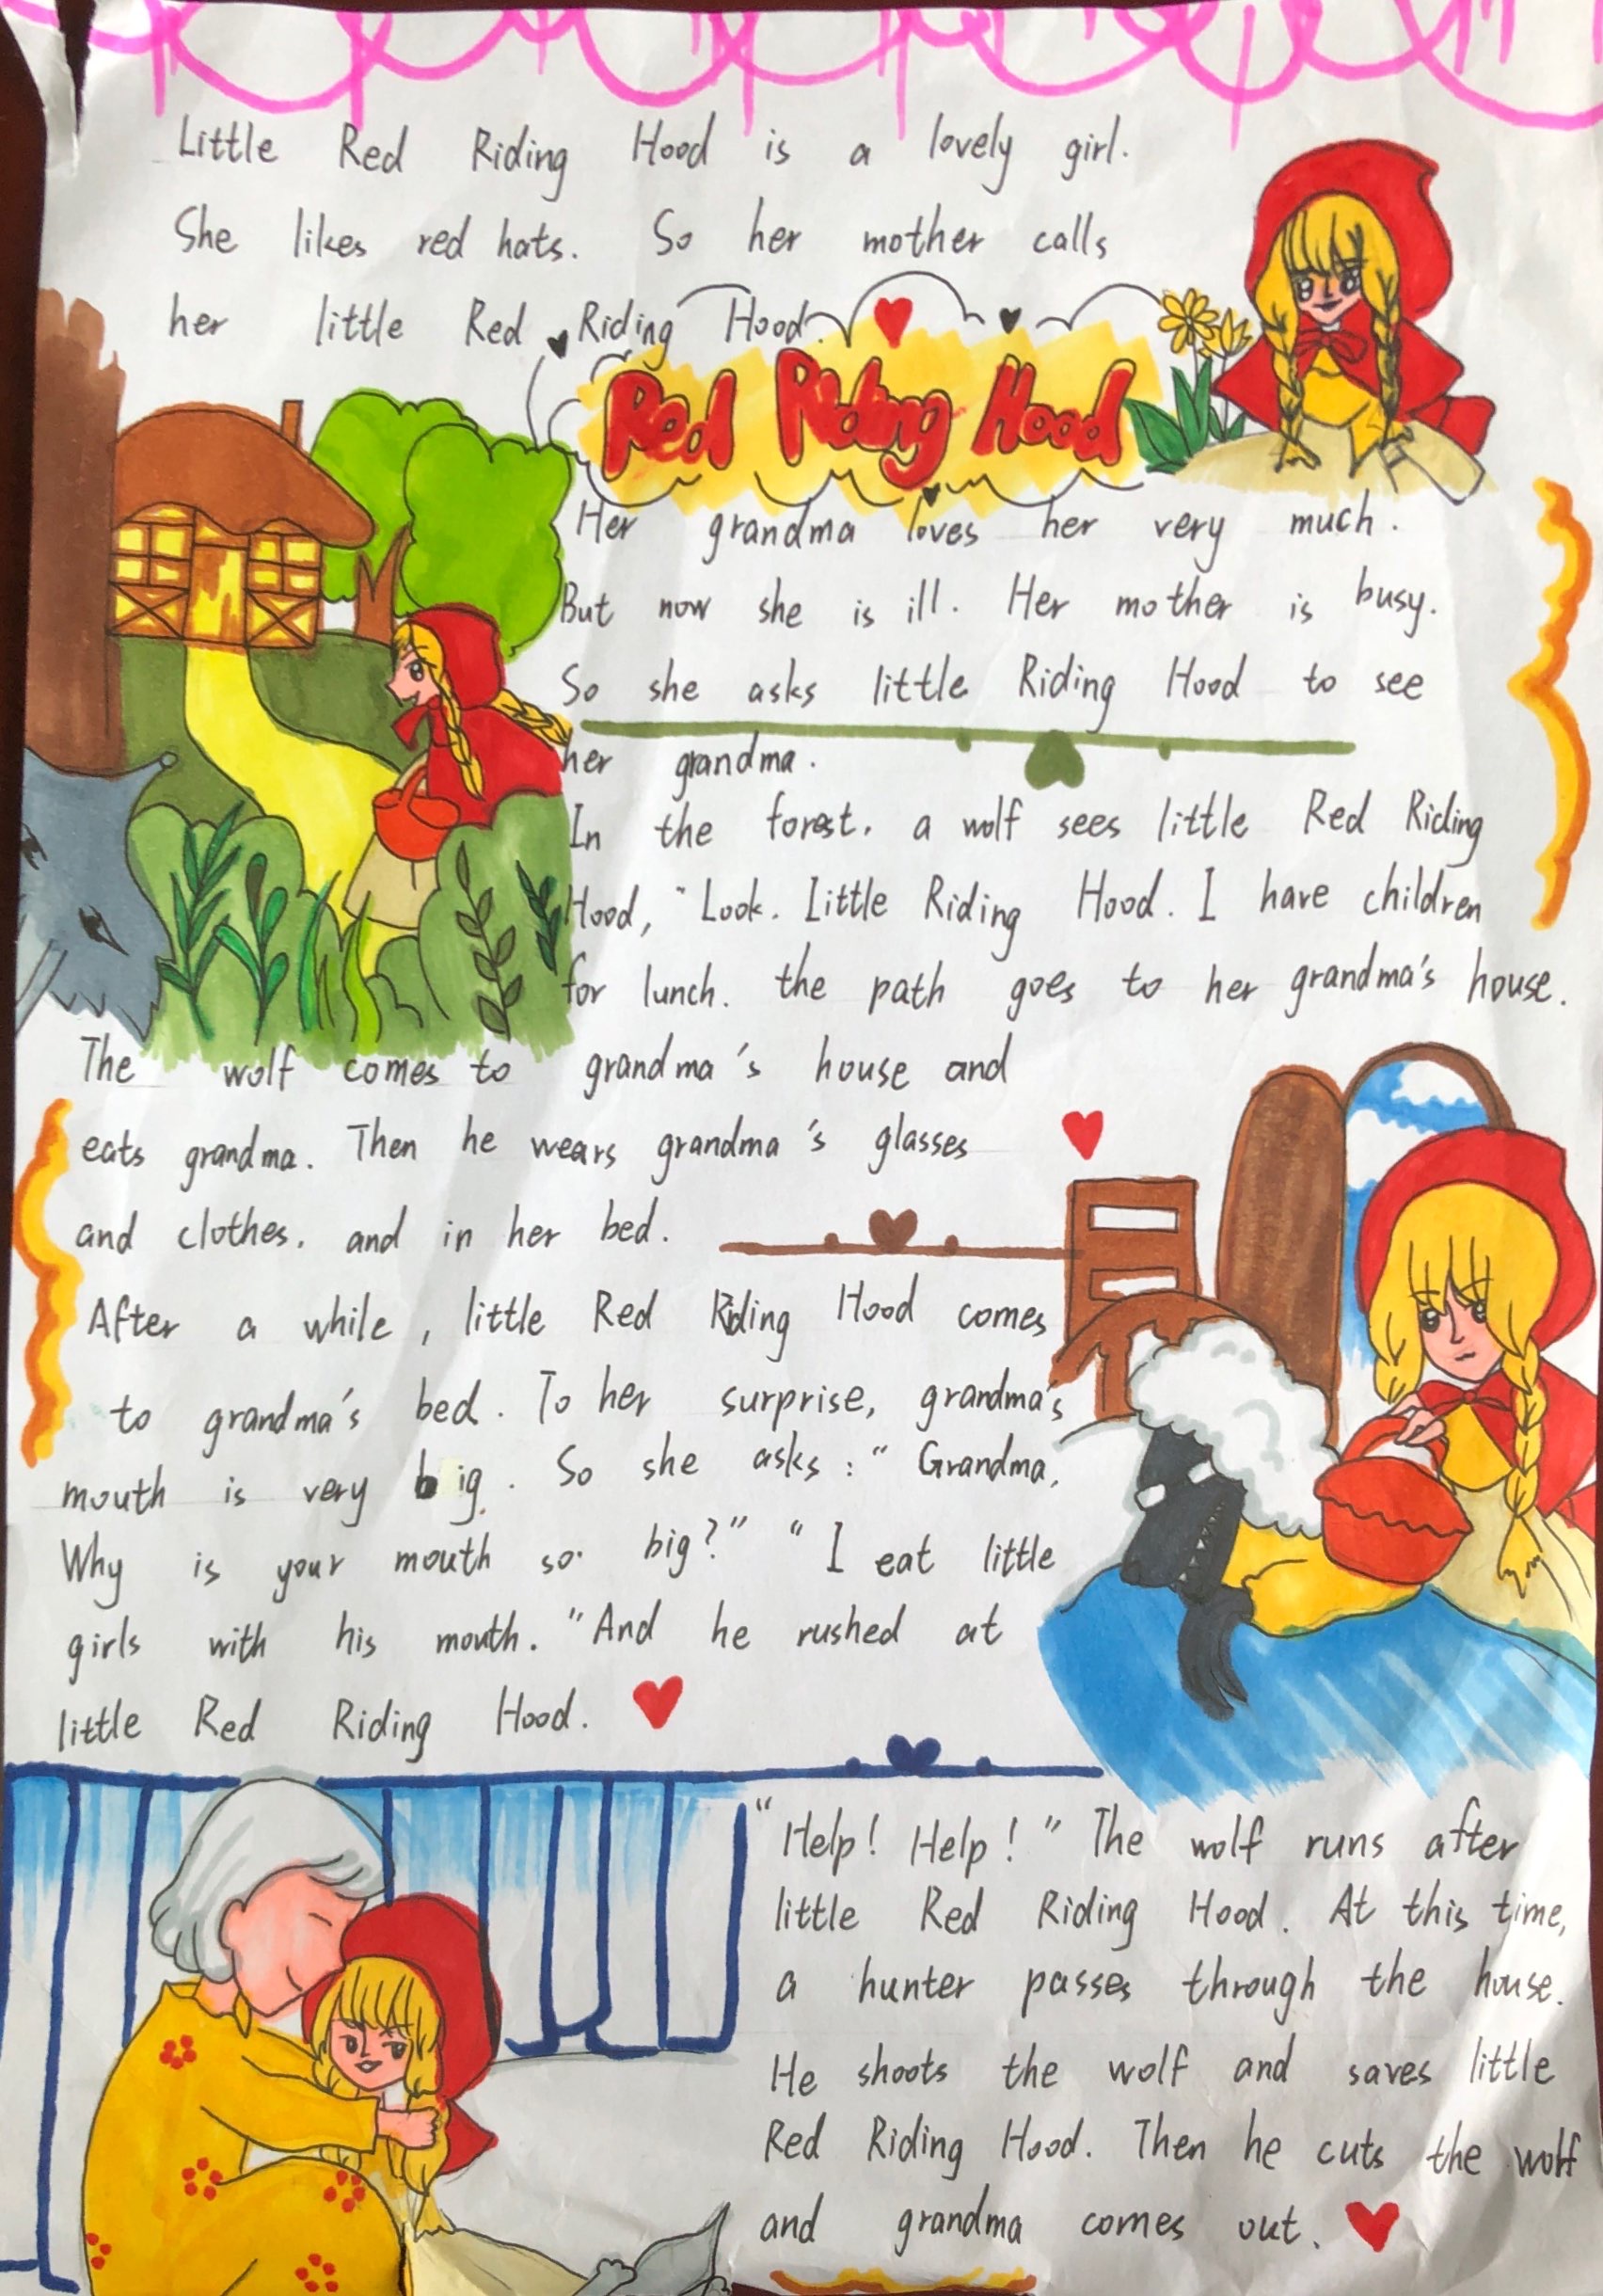 Little Red Riding Hood is a lovely girl.
She likes red hats. So her mother calls
her little Red Riding Hood.
Red Riding Hood
Her grandma loves her very much.
But now she is ill. Her mother is busy.
So she asks little Riding Hood to see
her grandma.
In the forest. a wolf sees little Red Riding
Hood, "Look. Little Riding Hood. I have children
for lunch. the path goes to her grandma's house.
The wolf comes to grandma's house and
eats grandma. Then he wears grandma's glasses
and clothes. and in her bed.
After a while, little Red Riding Hood comes
to grandma's bed. To her surprise, grandma's
mouth is very big. So she asks: "Grandma,
Why is your mouth so big?" "I eat little
girls with his mouth. "And he rushed at
little Red Riding Hood.
"Help! Help!" The wolf runs after
little Red Riding Hood. At this time,
a hunter passes through the house.
He shoots the wolf and saves little
Red Riding Hood. Then he cuts the wolf
and grandma comes out.